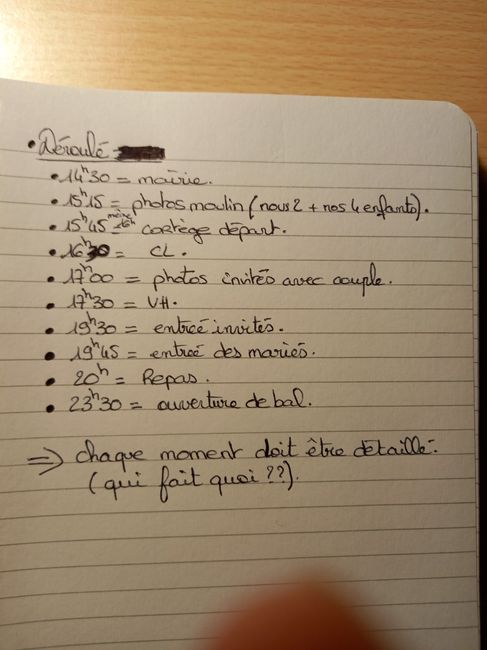 • Déroulé
• 14h30 = mairie.
• 15h15 = photos moulin (nous 2 + nos 4 enfants).
• 15h45 = cortège départ.
• 16h30 = CL.
• 17h00 = photos invités avec couple.
• 17h30 = VH.
• 19h30 = entrée invités.
• 19h45 = entrée des mariés.
• 20h = Repas.
• 23h30 = ouverture de bal.
⇒ chaque moment doit être détaillé.
(qui fait quoi ??).